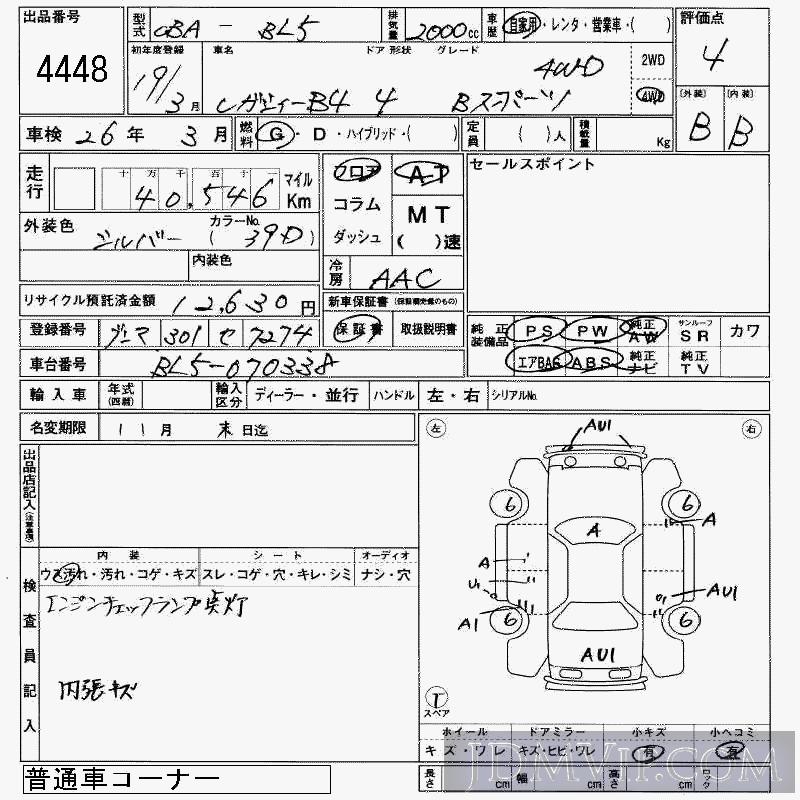 出品番号 4448
型式 CBA - BL5 排気量 2000cc 車歴 自家用・レンタ・営業車・( )
評価点 4
初年度登録 19/3月 車名 ドア 形状 グレード 4WD 2WD 4WD
レガシィーB4 4 Bスポーツ
〔外装〕 B 〔内装〕 B
車検 26年 3月 燃料 G・D・ハイブリッド・( ) 定員 ( )人 積載量 Kg
走行 十万千百十一 40,546 マイル Km
フロア コラム ダッシュ
AT MT ( )速
セールスポイント
外装色 シルバー カラーNo. (39D)
内装色
冷房 AAC
リサイクル預託済金額 12,630円
新車保証書 (保証継続のもの)
保証書 取扱説明書
登録番号 301 セ 7274
純正装備品 PS PW 純正AW サンルーフ SR カワ
エアBAG ABS 純正ナビ 純正TV
車台番号 BL5-070338
輸入車 年式(西暦) 輸入区分 ディーラー・並行 ハンドル 左・右 シリアルNo.
名変期限 11月 末日迄
出品店記入(注意事項)
左 右
AU1
6 6
A A
A
U1 AU1
A1
6 6
AU1
T スペア
検査員記入
内装 シート オーディオ
ウス汚れ・汚れ・コゲ・キズ スレ・コゲ・穴・キレ・シミ ナシ・穴
エンジンチェックランプ点灯
内張キズ
ホイール ドアミラー 小キズ 小ヘコミ
キズ・ワレ キズ・ヒビ・ワレ 有 有
長さ cm 幅 cm 高さ cm ロック
普通車コーナー
JDMVIP.COM